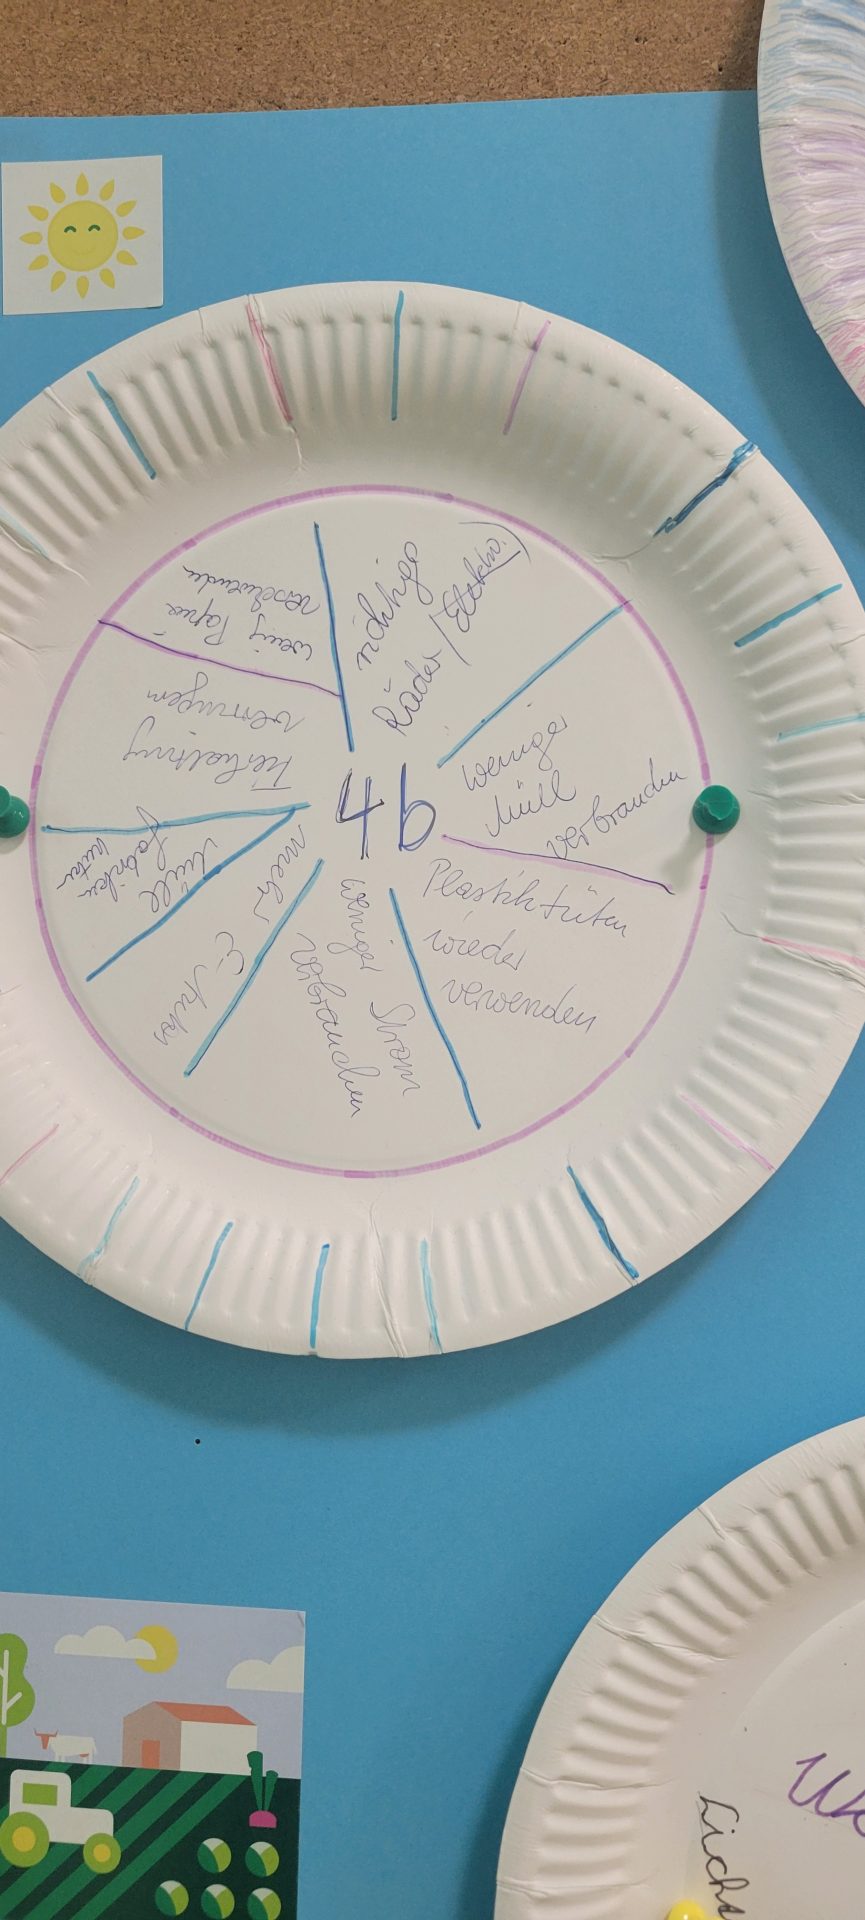 4b
richtige
Räder / Elektro.)
weniger
Müll
verbrauchen
Plastiktüten
wieder
verwenden
weniger Strom
verbrauchen
mehr
Müll
fabriken
Tierhaltung
verringern
wenig Papier
verschwenden